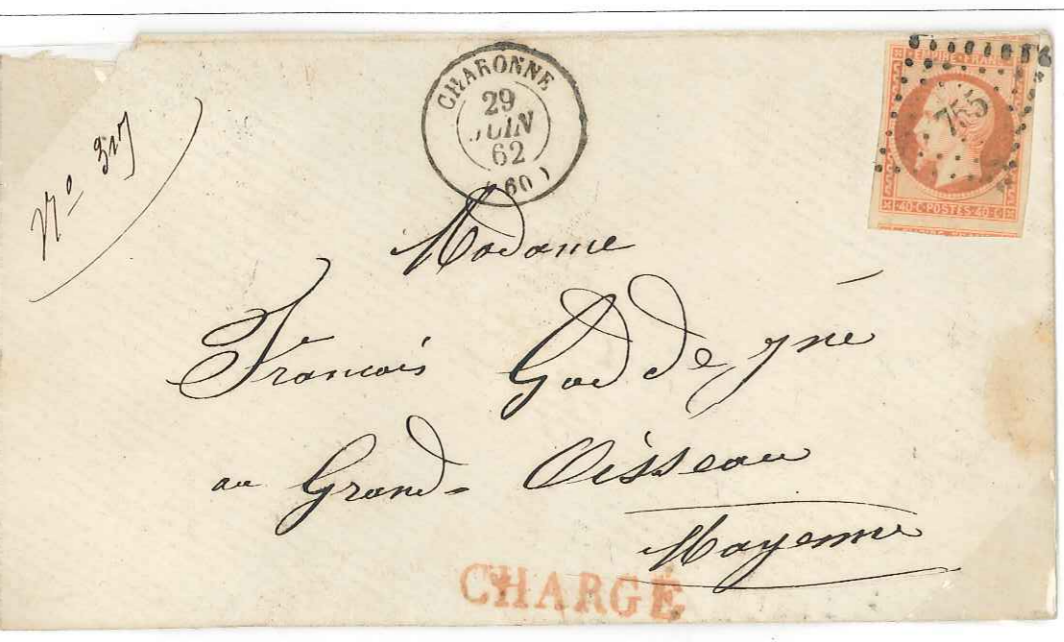 CHARONNE
29
JUIN
62
(60)
EMPIRE FRANC
765
40·C·POSTES·40·C
No 317
Madame
Francois
au Grand-Oisseau
Mayenne
CHARGÉ